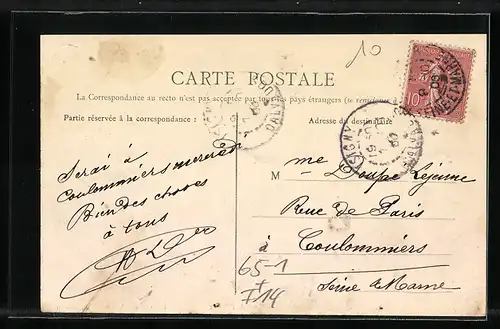 10
CARTE POSTALE
La Correspondance au recto n'est pas acceptée par tous les pays étrangers (se renseigner
Partie réservée à la correspondance :
Adresse du destinataire
Serai à
Coulommiers mercredi
Bien des choses
à tous
M me Doupe Lejeune
Rue de Paris
à Coulommiers
Seine & Marne
65-1
+
T14
10
ISIGNY